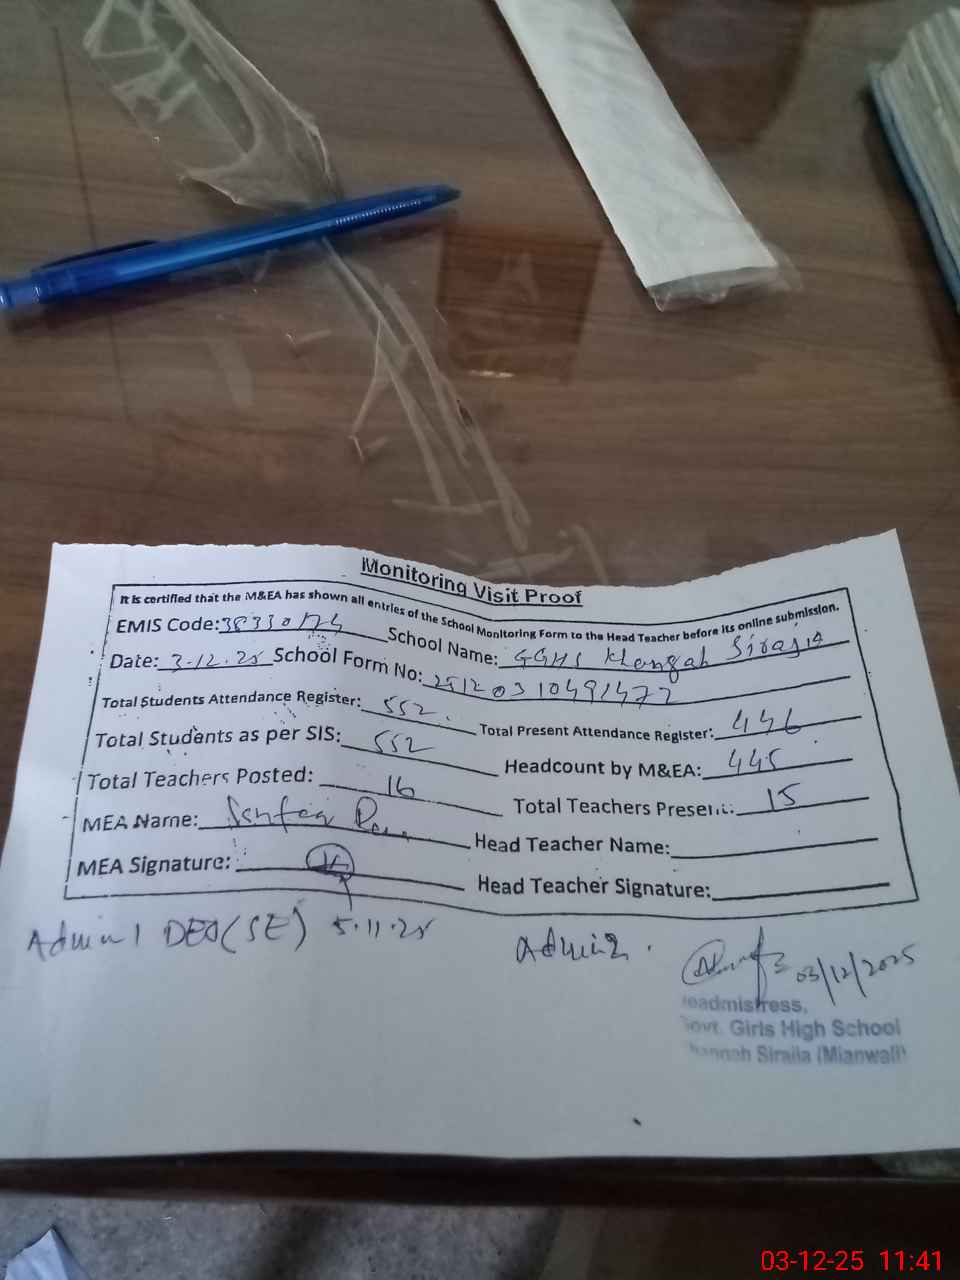 Monitoring Visit Proof
It is certified that the M&EA has shown all entries of the School Monitoring Form to the Head Teacher before its online submission.
EMIS Code: 38330174 School Name: GGHS Khangah Sirajia
Date: 3.12.25 School Form No: 2512031049 1472
Total Students Attendance Register: 552. Total Present Attendance Register: 446
Total Students as per SIS: 552 Headcount by M&EA: 445
Total Teachers Posted: 16 Total Teachers Present: 15
MEA Name: Head Teacher Name:
MEA Signature: Head Teacher Signature:
Admin 1 DEO(SE) 5.11.25 Admin 2.
03/12/2025
Headmistress,
Govt. Girls High School
(Mianwali)
03-12-25 11:41